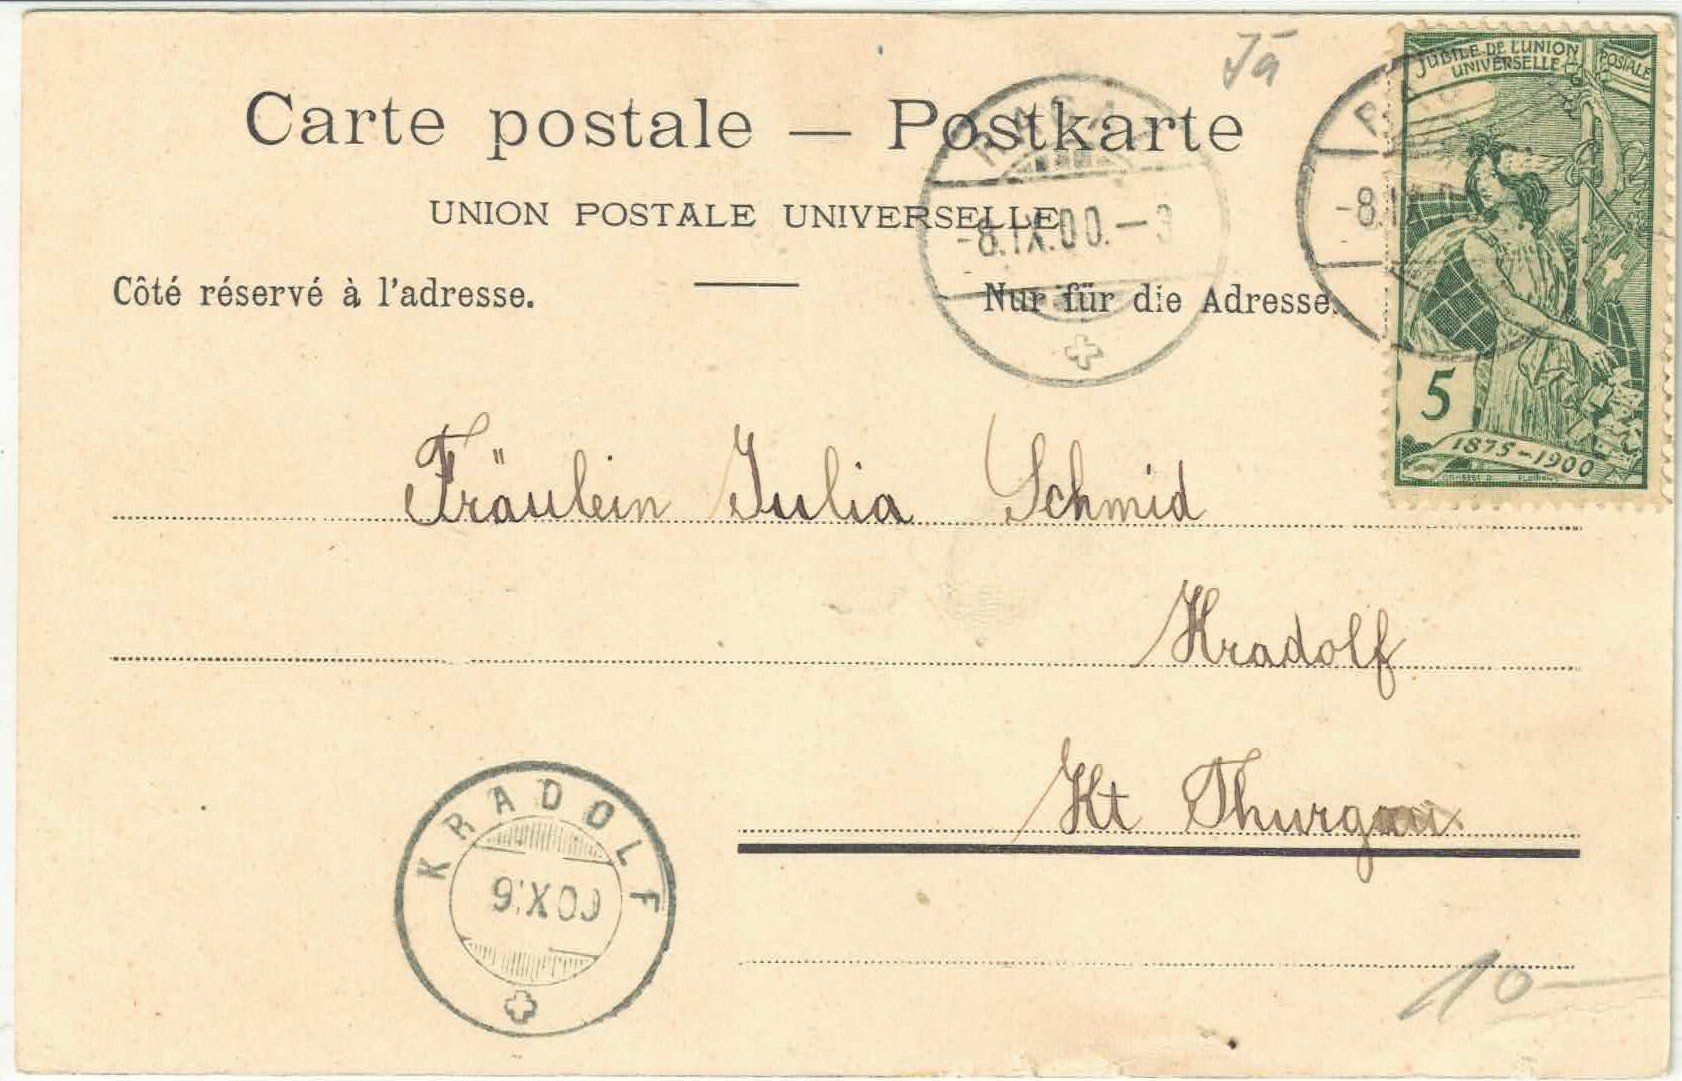 Jä
JUBILÉ DE L'UNION POSTALE
UNIVERSELLE
Carte postale — Postkarte
UNION POSTALE UNIVERSELLE
-8.IX.00.-
-8.IX.0
Côté réservé à l'adresse.
Nur für die Adresse.
5
1875-1900
Fräulein Julia Schmid
Kradolf
Kt Thurgau
KRADOLF
9.X00
10-